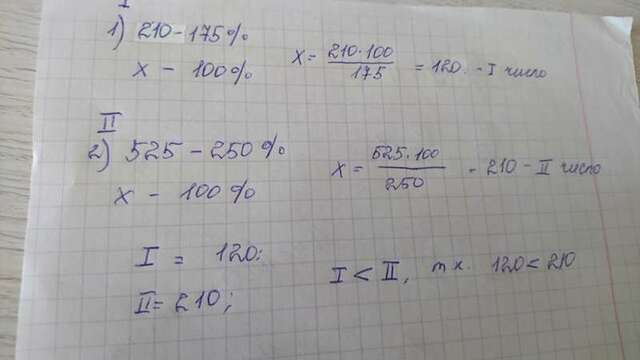 I
1) 210 - 175%
x - 100%
x = 210·100 / 175 = 120. - I число
II
2) 525 - 250%
x - 100%
x = 525·100 / 250 - 210 - II число
I = 120:
II = 210;
I < II, т.к. 120 < 210